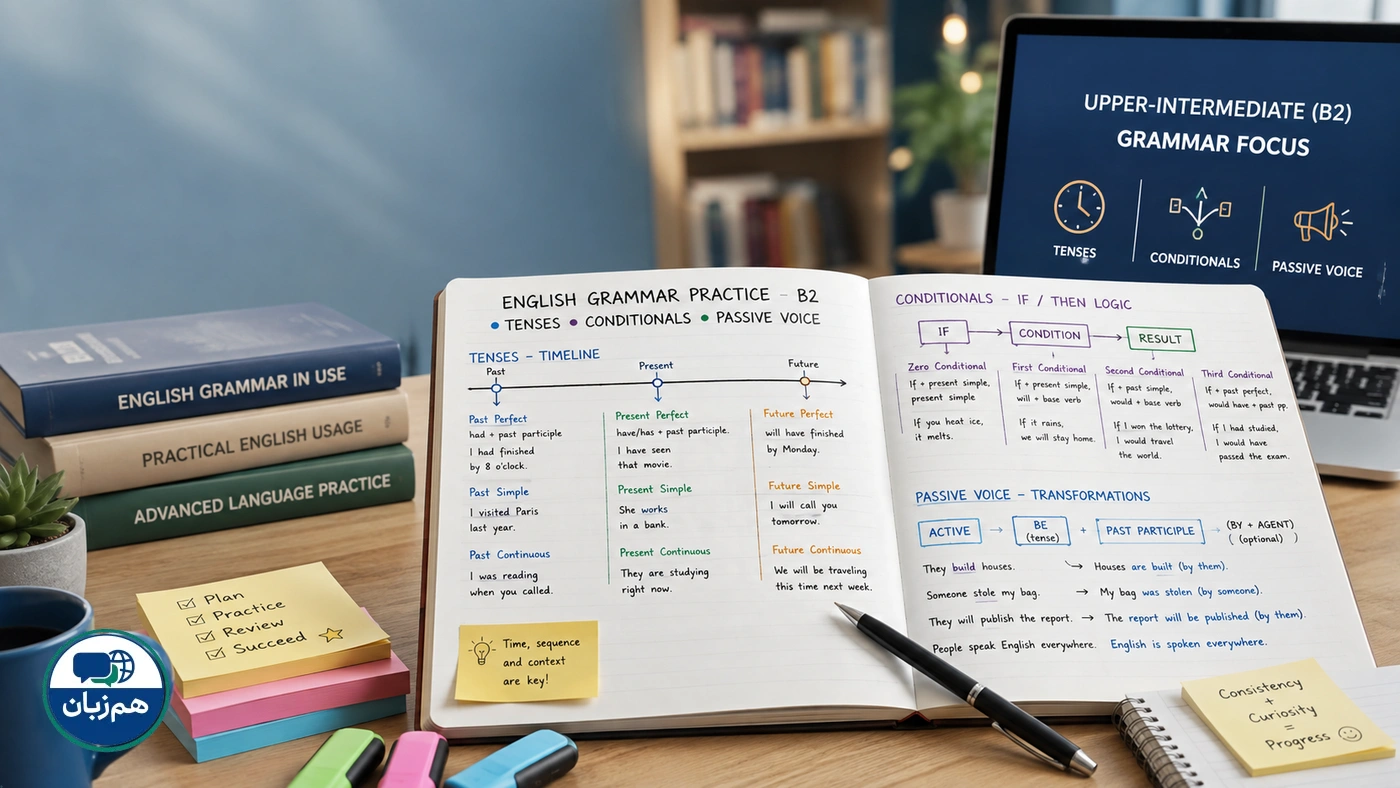 UPPER-INTERMEDIATE (B2)
GRAMMAR FOCUS
TENSES
CONDITIONALS
PASSIVE VOICE
ENGLISH GRAMMAR IN USE
PRACTICAL ENGLISH USAGE
ADVANCED LANGUAGE PRACTICE
Plan
Practice
Review
Succeed
هم‌زبان
ENGLISH GRAMMAR PRACTICE - B2
• TENSES • CONDITIONALS • PASSIVE VOICE
TENSES - TIMELINE
Past Present Future
Past Perfect
had + past participle
I had finished
by 8 o'clock.
Past Simple
I visited Paris
last year.
Past Continuous
I was reading
when you called.
Present Perfect
have/has + past participle.
I have seen
that movie.
Present Simple
She works
in a bank.
Present Continuous
They are studying
right now.
Future Perfect
will have finished
by Monday.
Future Simple
I will call you
tomorrow.
Future Continuous
We will be traveling
this time next week.
Time, sequence
and context
are key!
CONDITIONALS - IF / THEN LOGIC
IF → CONDITION → RESULT
Zero Conditional
If + present simple,
present simple
If you heat ice,
it melts.
First Conditional
If + present simple,
will + base verb
If it rains,
we will stay home.
Second Conditional
If + past simple,
would + base verb
If I won the lottery,
I would travel
the world.
Third Conditional
If + past perfect,
would have + past pp.
If I had studied,
I would have
passed the exam.
PASSIVE VOICE - TRANSFORMATIONS
ACTIVE → BE (tense) + PAST PARTICIPLE → (BY + AGENT) (optional)
They build houses. → Houses are built (by them).
Someone stole my bag. → My bag was stolen (by someone).
They will publish the report. → The report will be published (by them).
People speak English everywhere. English is spoken everywhere.
Consistency
+
Curiosity
=
Progress